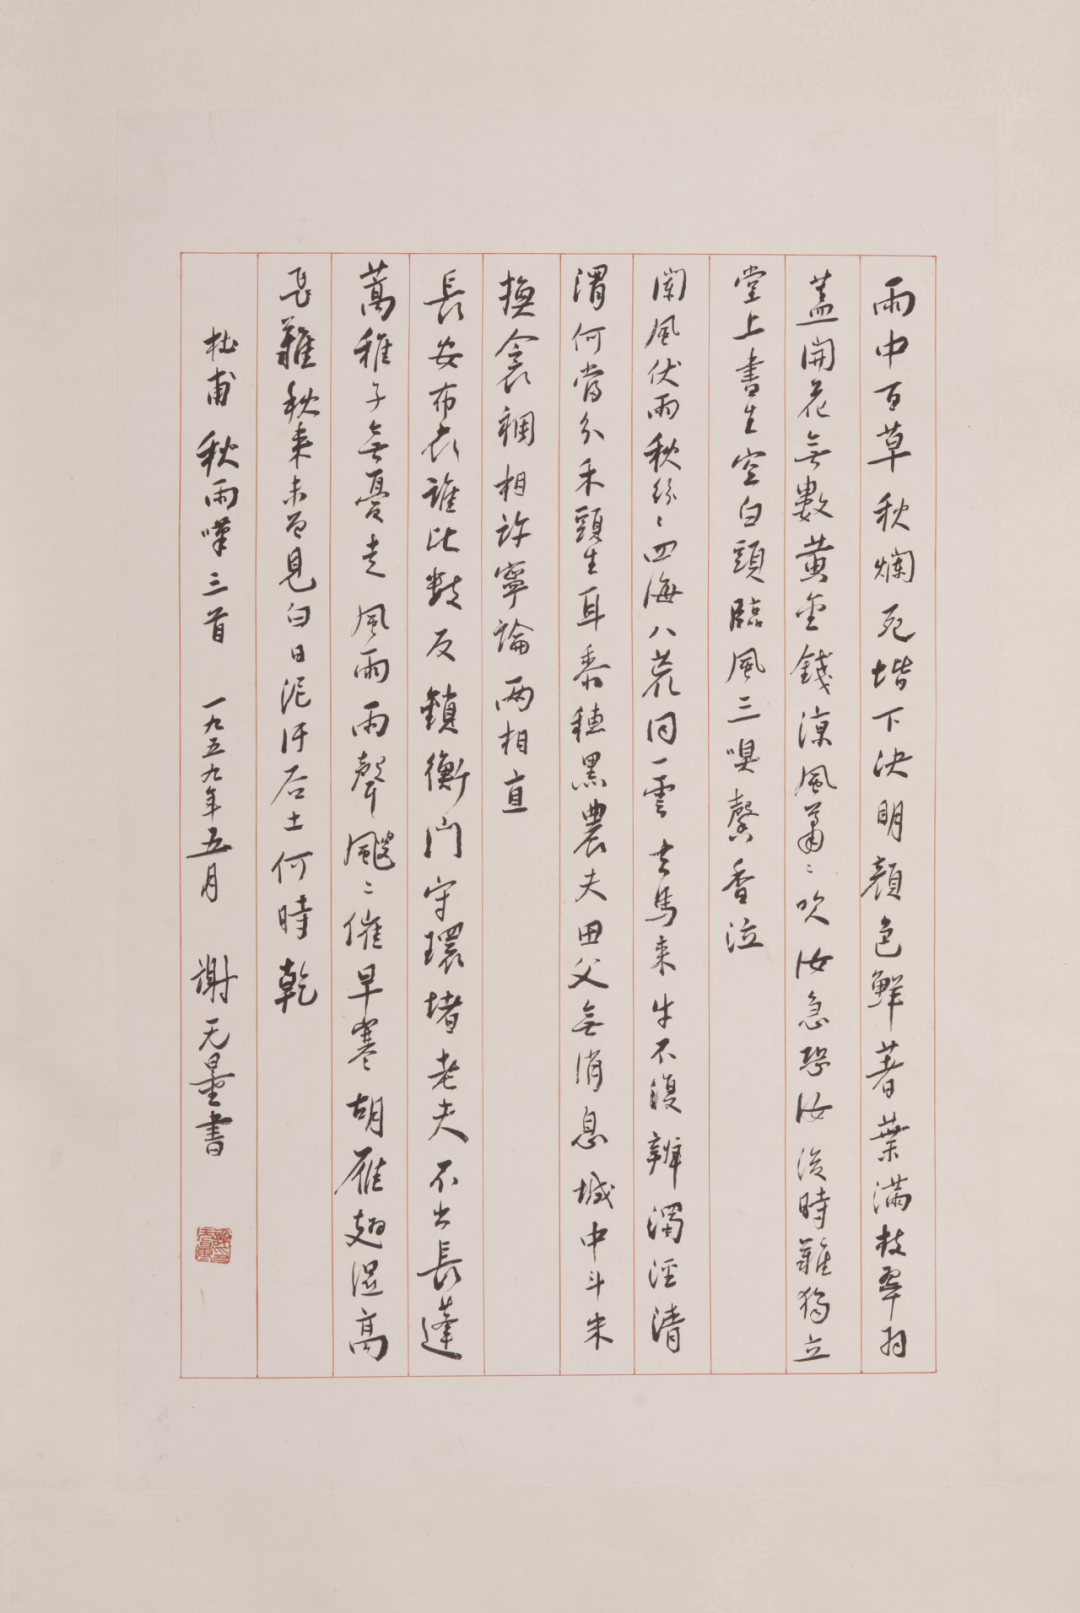 雨中百草秋爛死堦下決明顔色鮮著葉滿枝翠羽
蓋開花無數黃金錢涼風蕭〻吹汝急恐汝後時難獨立
堂上書生空白頭臨風三嗅馨香泣
闌風伏雨秋紛〻四海八荒同一雲去馬来牛不復辨濁涇清
渭何當分禾頭生耳黍穗黑農夫田父無消息城中斗米
換衾裯相許寧論兩相直
長安布衣誰比數反鎖衡門守環堵老夫不出長蓬
蒿稚子無憂走風雨雨聲颼〻催早寒胡雁翅濕高
飛難秋来未曾見白日泥汙后土何時乾
杜甫秋雨嘆三首 一九五九年五月 謝无量書